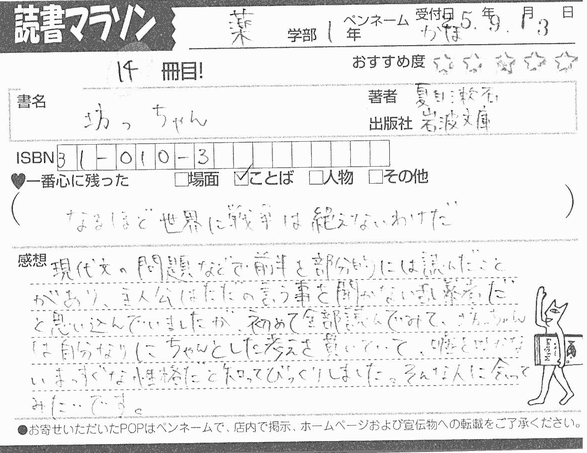 読書マラソン
薬 学部 1 年 ペンネーム かほ 受付日 25 年 9 月 13 日
おすすめ度 ☆☆☆☆☆
14 冊目!
書名 坊っちゃん
著者 夏目漱石
出版社 岩波文庫
ISBN 31-010-3
♥一番心に残った □場面 ☑ことば □人物 □その他
(なるほど世界に戦争は絶えないわけだ)
感想 現代文の問題などで前半を部分的には読んだこと
があり、主人公はただの言う事を聞かない乱暴者だ
と思い込んでいましたが、初めて全部読んでみて、坊っちゃん
は自分なりにちゃんとした考えを貫いていて、嘘を吐かな
いまっすぐな性格だと知ってびっくりしました。そんな人に会って
みたいです。
●お寄せいただいたPOPはペンネームで、店内で掲示、ホームページおよび宣伝物への転載をご了承ください。